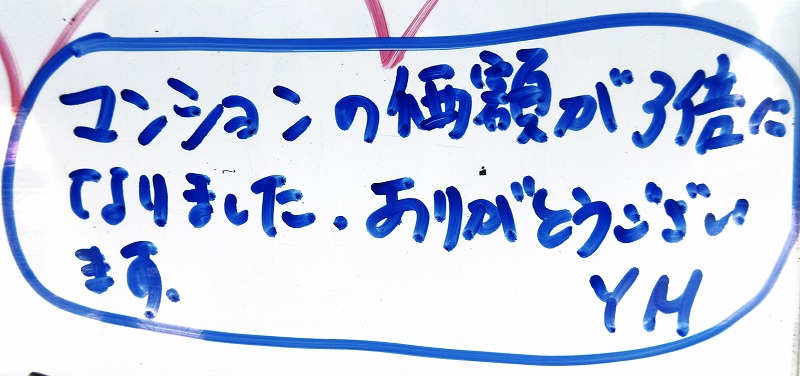 マンションの価額が3倍に
なりました。ありがとうござい
ます。
YM